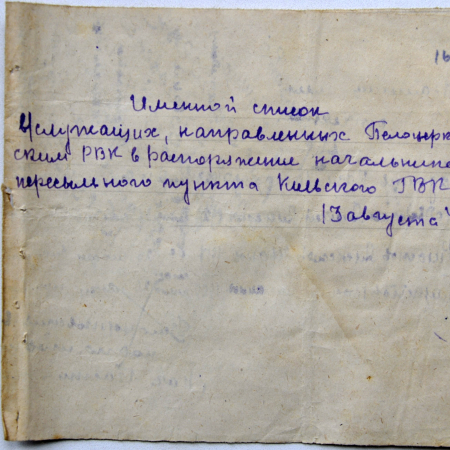 16
Именной список
служащих, направленных Белоцерк
ским РВК в распоряжение начальника
пересыльного пункта Киевского ГВК
13 августа